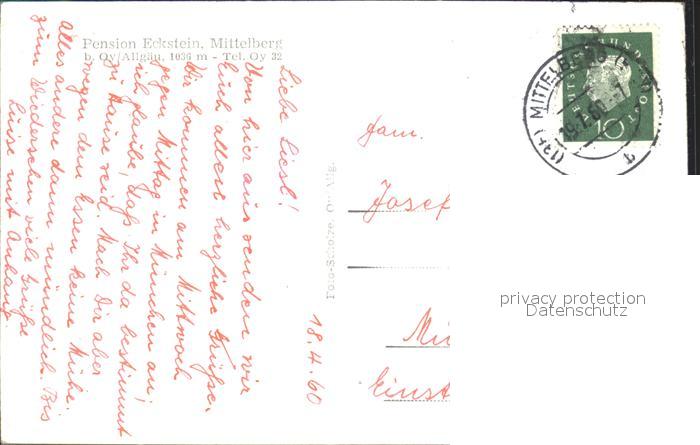 Pension Eckstein, Mittelberg
b. Oy/Allgäu, 1036 m - Tel. Oy 32
18.4.60
Liebe Liesl!
Von hier aus senden wir
Euch allen herzliche Grüße.
Wir kommen am Mittwoch
gegen Mittag in München an;
ich glaube, daß Ihr da bestimmt
zu Hause seid. Mach Dir aber
wegen dem Essen keine Mühe.
Alles andere dann mündlich. Bis
zum Wiedersehen viele Grüße
Luise mit Anhang.
Foto-Scholze, Oy Allg.
Fam.
Josef
Mü
Einst
MITTELBERG
10
privacy protection
Datenschutz